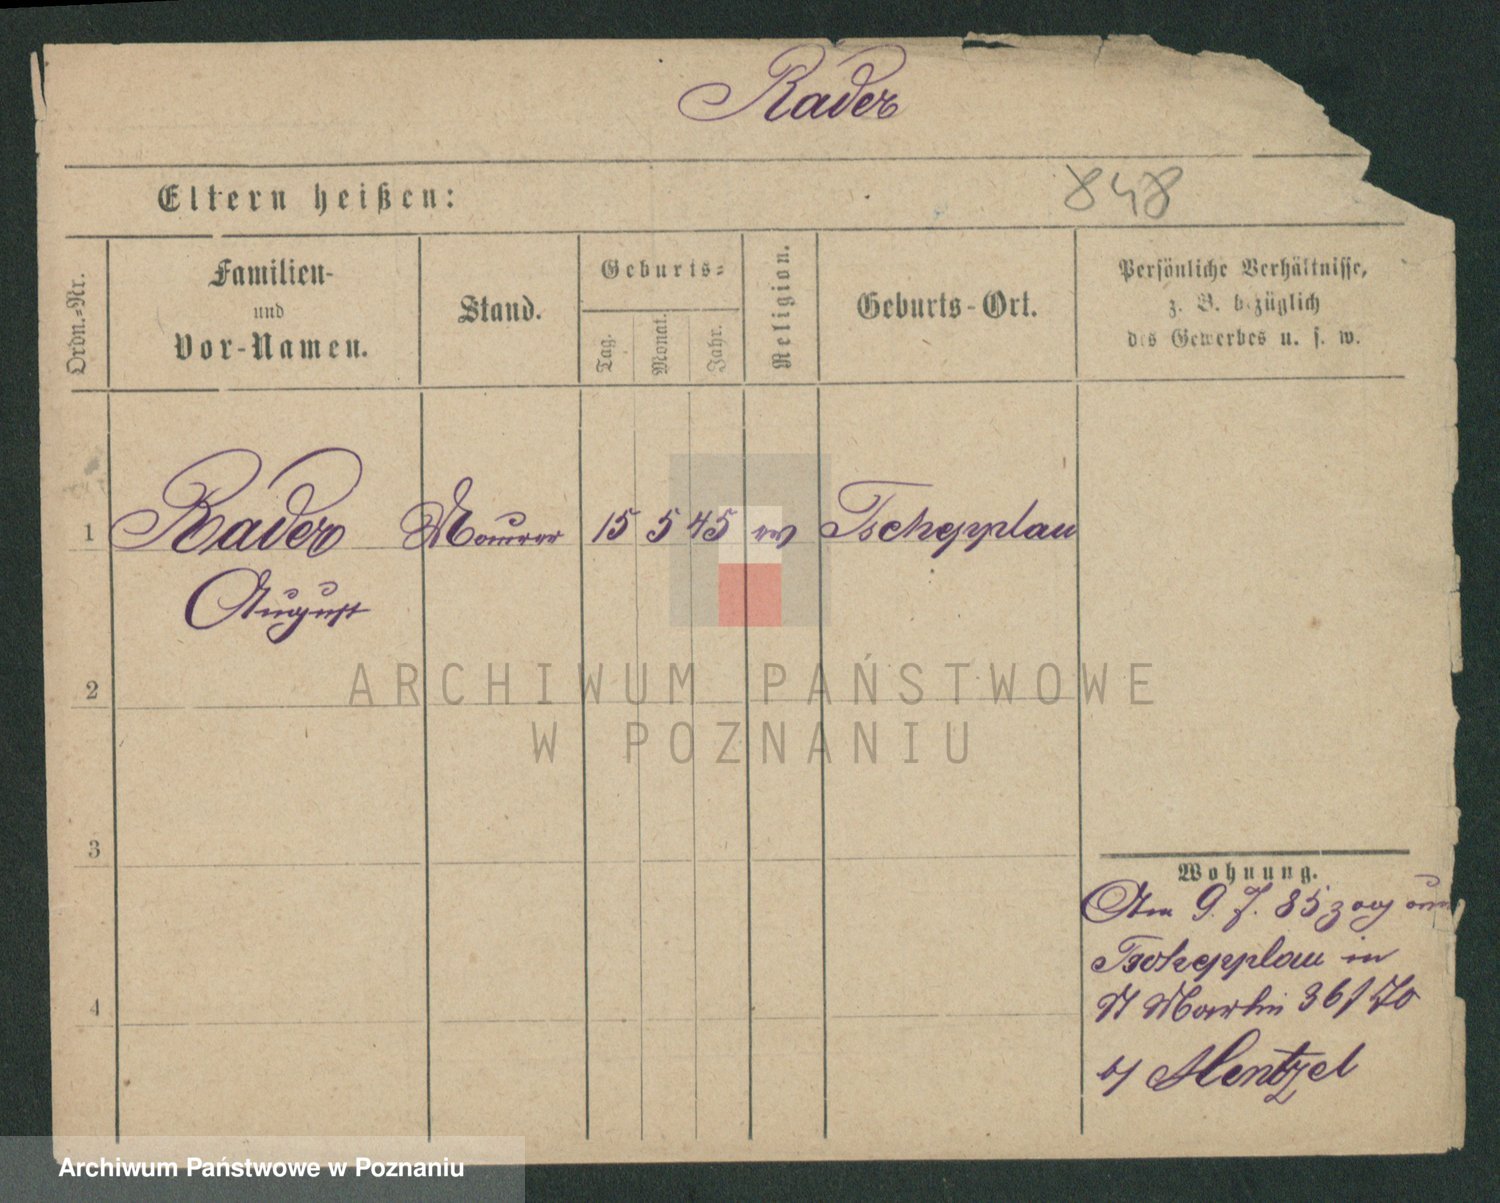 Rader
Eltern heißen:
848
Ordn.-Nr.
Familien-
und
Vor-Namen.
Stand.
Geburts-
Tag.
Monat.
Jahr.
Religion.
Geburts-Ort.
Persönliche Verhältnisse,
z. B. bezüglich
des Gewerbes u. s. w.
1 Rader Maurer 15 5 45 ev Tschepplau
August
2
3
4
Wohnung.
Am 9. 7. 85 zog aus
Tschepplau in
St Martin 36/70
b/ Hentzel
ARCHIWUM PAŃSTWOWE
W POZNANIU
Archiwum Państwowe w Poznaniu